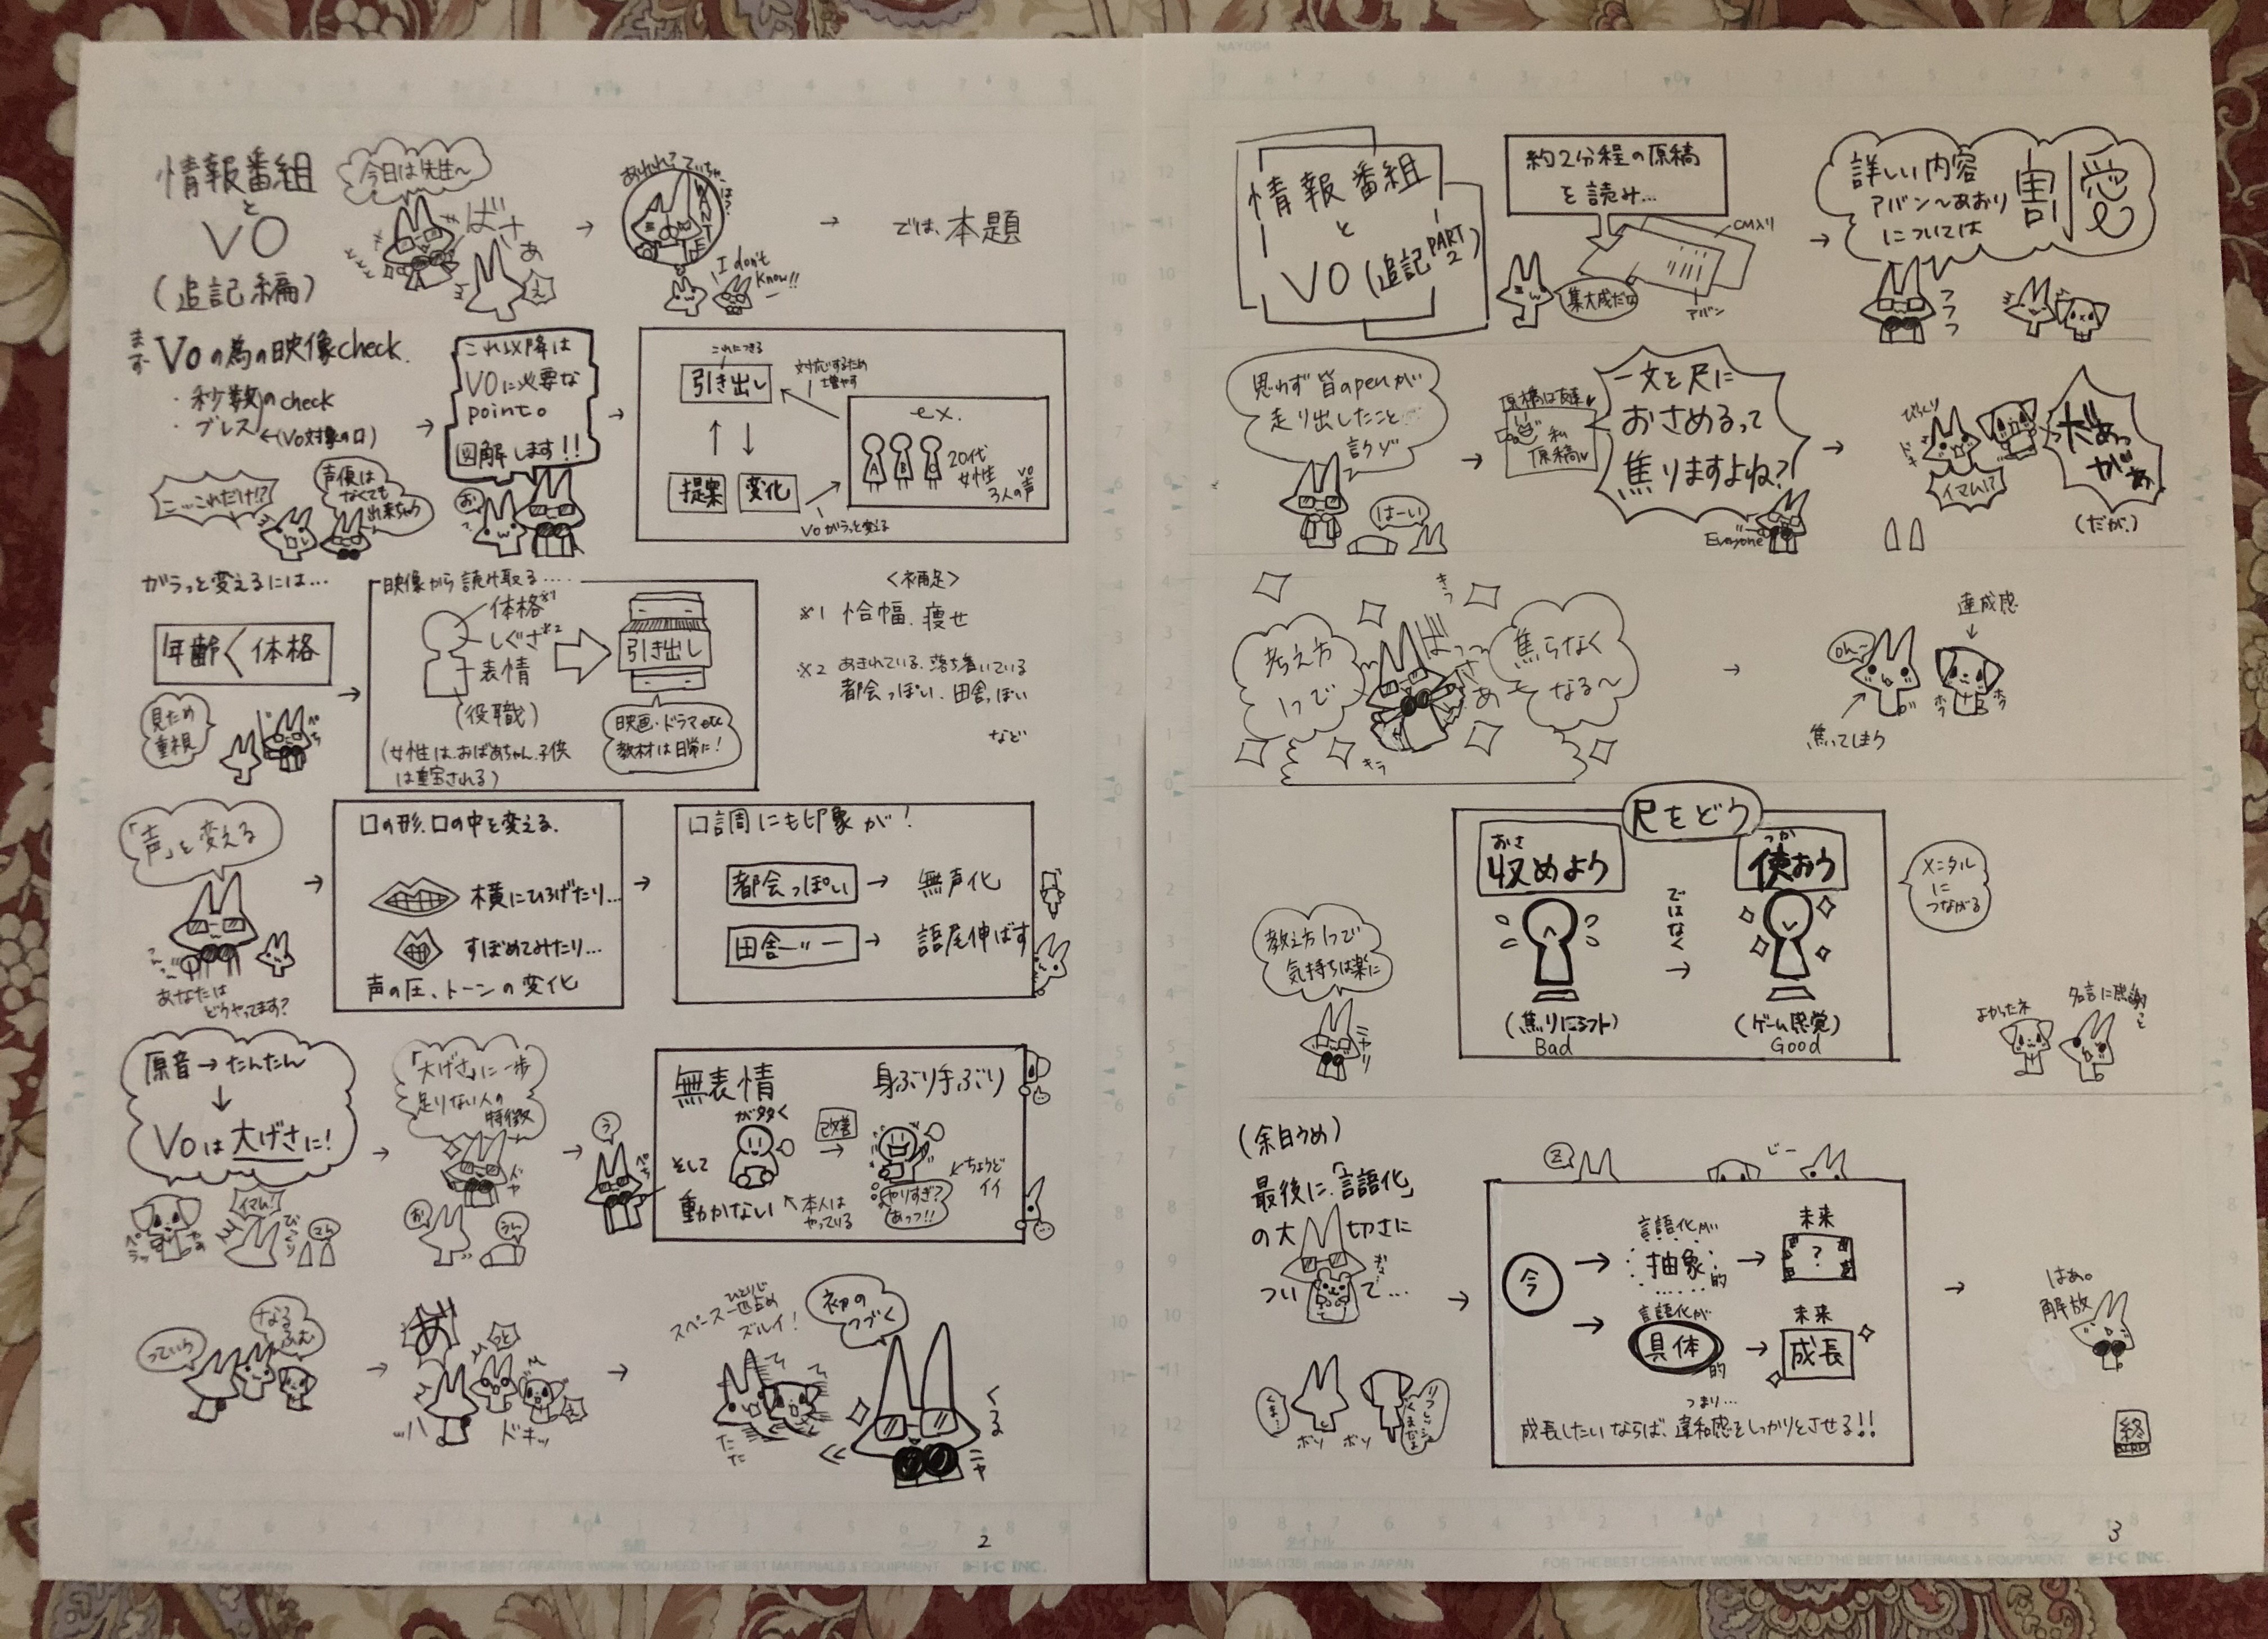 情報番組
と
VO
(追記編)
今日は先生〜
ばさぁ
え
WANTED
I don't
know!!
では、本題
まず VOの為の映像check.
・秒数のcheck
・ブレス←(VO対象の口)
こ…これだけ!?
声優は
なくても
出来ちゃう
これ以降は
VOに必要な
pointo
図解します!!
お
これにつきる
引き出し
対応するため
増やす
提案
変化
VOがらっと変える
ex.
A B C
20代
女性
3人の声
VO
ガラっと変えるには…
年齢く体格
見ため
重視
映像から読み取る….
体格※1
しぐさ※2
表情
(役職)
(女性は、おばあちゃん、子供
は重宝される)
引き出し
映画・ドラマetc
教材は日常に!
<補足>
※1 恰幅、痩せ
※2 あきれている、落ち着いている
都会っぽい、田舎っぽい
など
「声」を変える
あなたは
どうやってます?
口の形、口の中を変える.
横にひろげたり…
すぼめてみたり…
声の圧、トーンの変化
口調にも印象が!
都会っぽい → 無声化
田舎〃 → 語尾伸ばす
原音→たんたん
↓
VOは大げさに!
イマム!
「大げさ」に一歩
足りない人の
特徴
ドヤ
無表情
が多く
そして
動かない
本人は
やっている
改善
身ぶり手ぶり
やりすぎ?
あっつ!!
ちょうど
イイ
っていう
なる
ふむ
あ
ドキッ
スペース一匹占め
ひとりじ
ズルイ!
たたた
初の
つづく
くる
ニャ
2
FOR THE BEST CREATIVE WORK YOU NEED THE BEST MATERIALS & EQUIPMENT
I・C INC.
情報番組
と
VO(追記PART2)
約2分程の原稿
を読み…
CM入り
アバン
集大成だな
詳しい内容
アバン〜あおり
については
割愛
フフフ
思わず皆のpenが
走り出したこと
はーい
原稿は
私
原稿
一文を尺に
おさめるって
焦りますよね?
Everyone
びっくり
イマム!?
(だが.)
考え方
1つで
ばっさぁ
焦らなく
なる〜
キラ
oh…
焦ってしまう
達成感
ホワ ホワ
尺をどう
おさ
収めよう
ではなく
→
つか
使おう
(焦りにシフト)
Bad
(ゲーム感覚)
Good
メンタル
に
つながる
教え方1つで
気持ちは楽に
ニヤリ
よかったネ
(余白うめ)
最後に、「言語化」
の大切さに
ついて…
くま…
ボソ ボソ
じー
今
言語化が
抽象的
未来
?
言語化が
具体的
未来
成長
つまり…
成長したいならば、違和感をしっかりとさせる!!
はぁ。
解放
終
3
IM-35A (135) made in JAPAN
FOR THE BEST CREATIVE WORK YOU NEED THE BEST MATERIALS & EQUIPMENT
I・C INC.